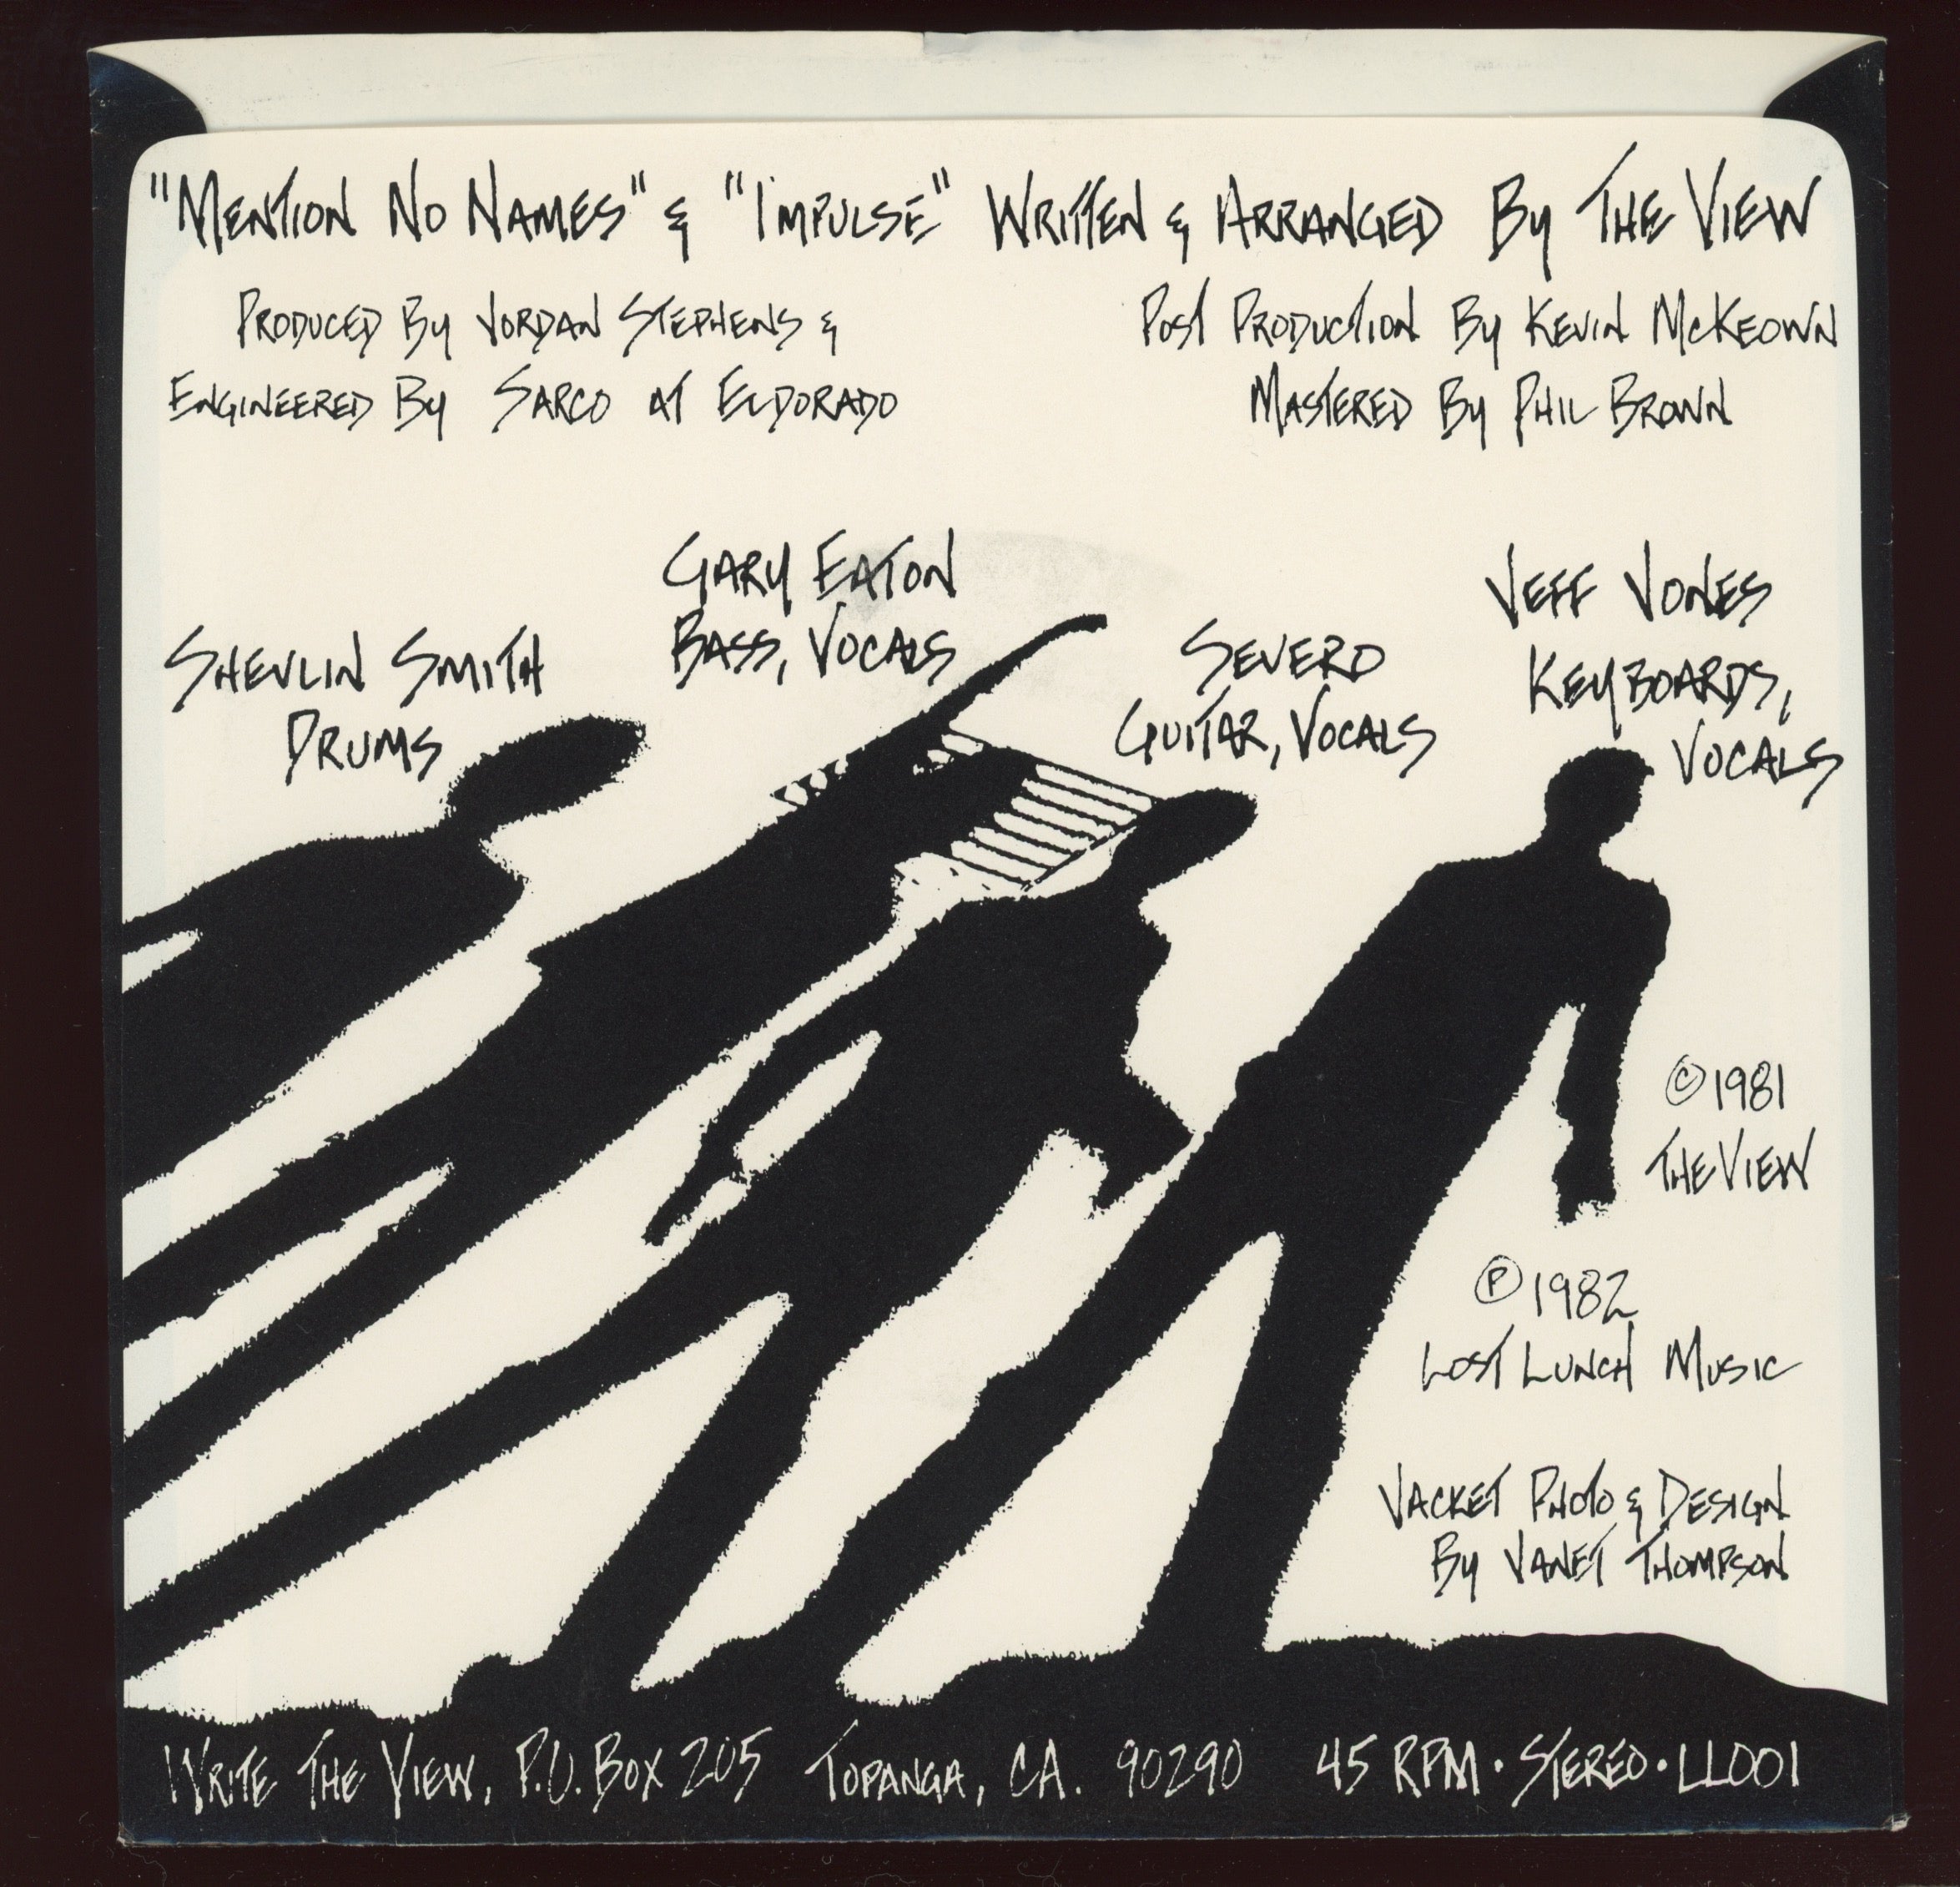 "Mention No Names" & "Impulse" Written & Arranged By The View
Produced By Jordan Stephens &
Engineered By Sarco at Eldorado
Post Production By Kevin McKeown
Mastered By Phil Brown
Shevlin Smith
Drums
Gary Eaton
Bass, Vocals
Severo
Guitar, Vocals
Jeff Jones
Keyboards,
Vocals
©1981
The View
℗1982
Lost Lunch Music
Jacket Photo & Design
By Janet Thompson
Write The View, P.O. Box 205 Topanga, CA. 90290 45 RPM • Stereo • LL001